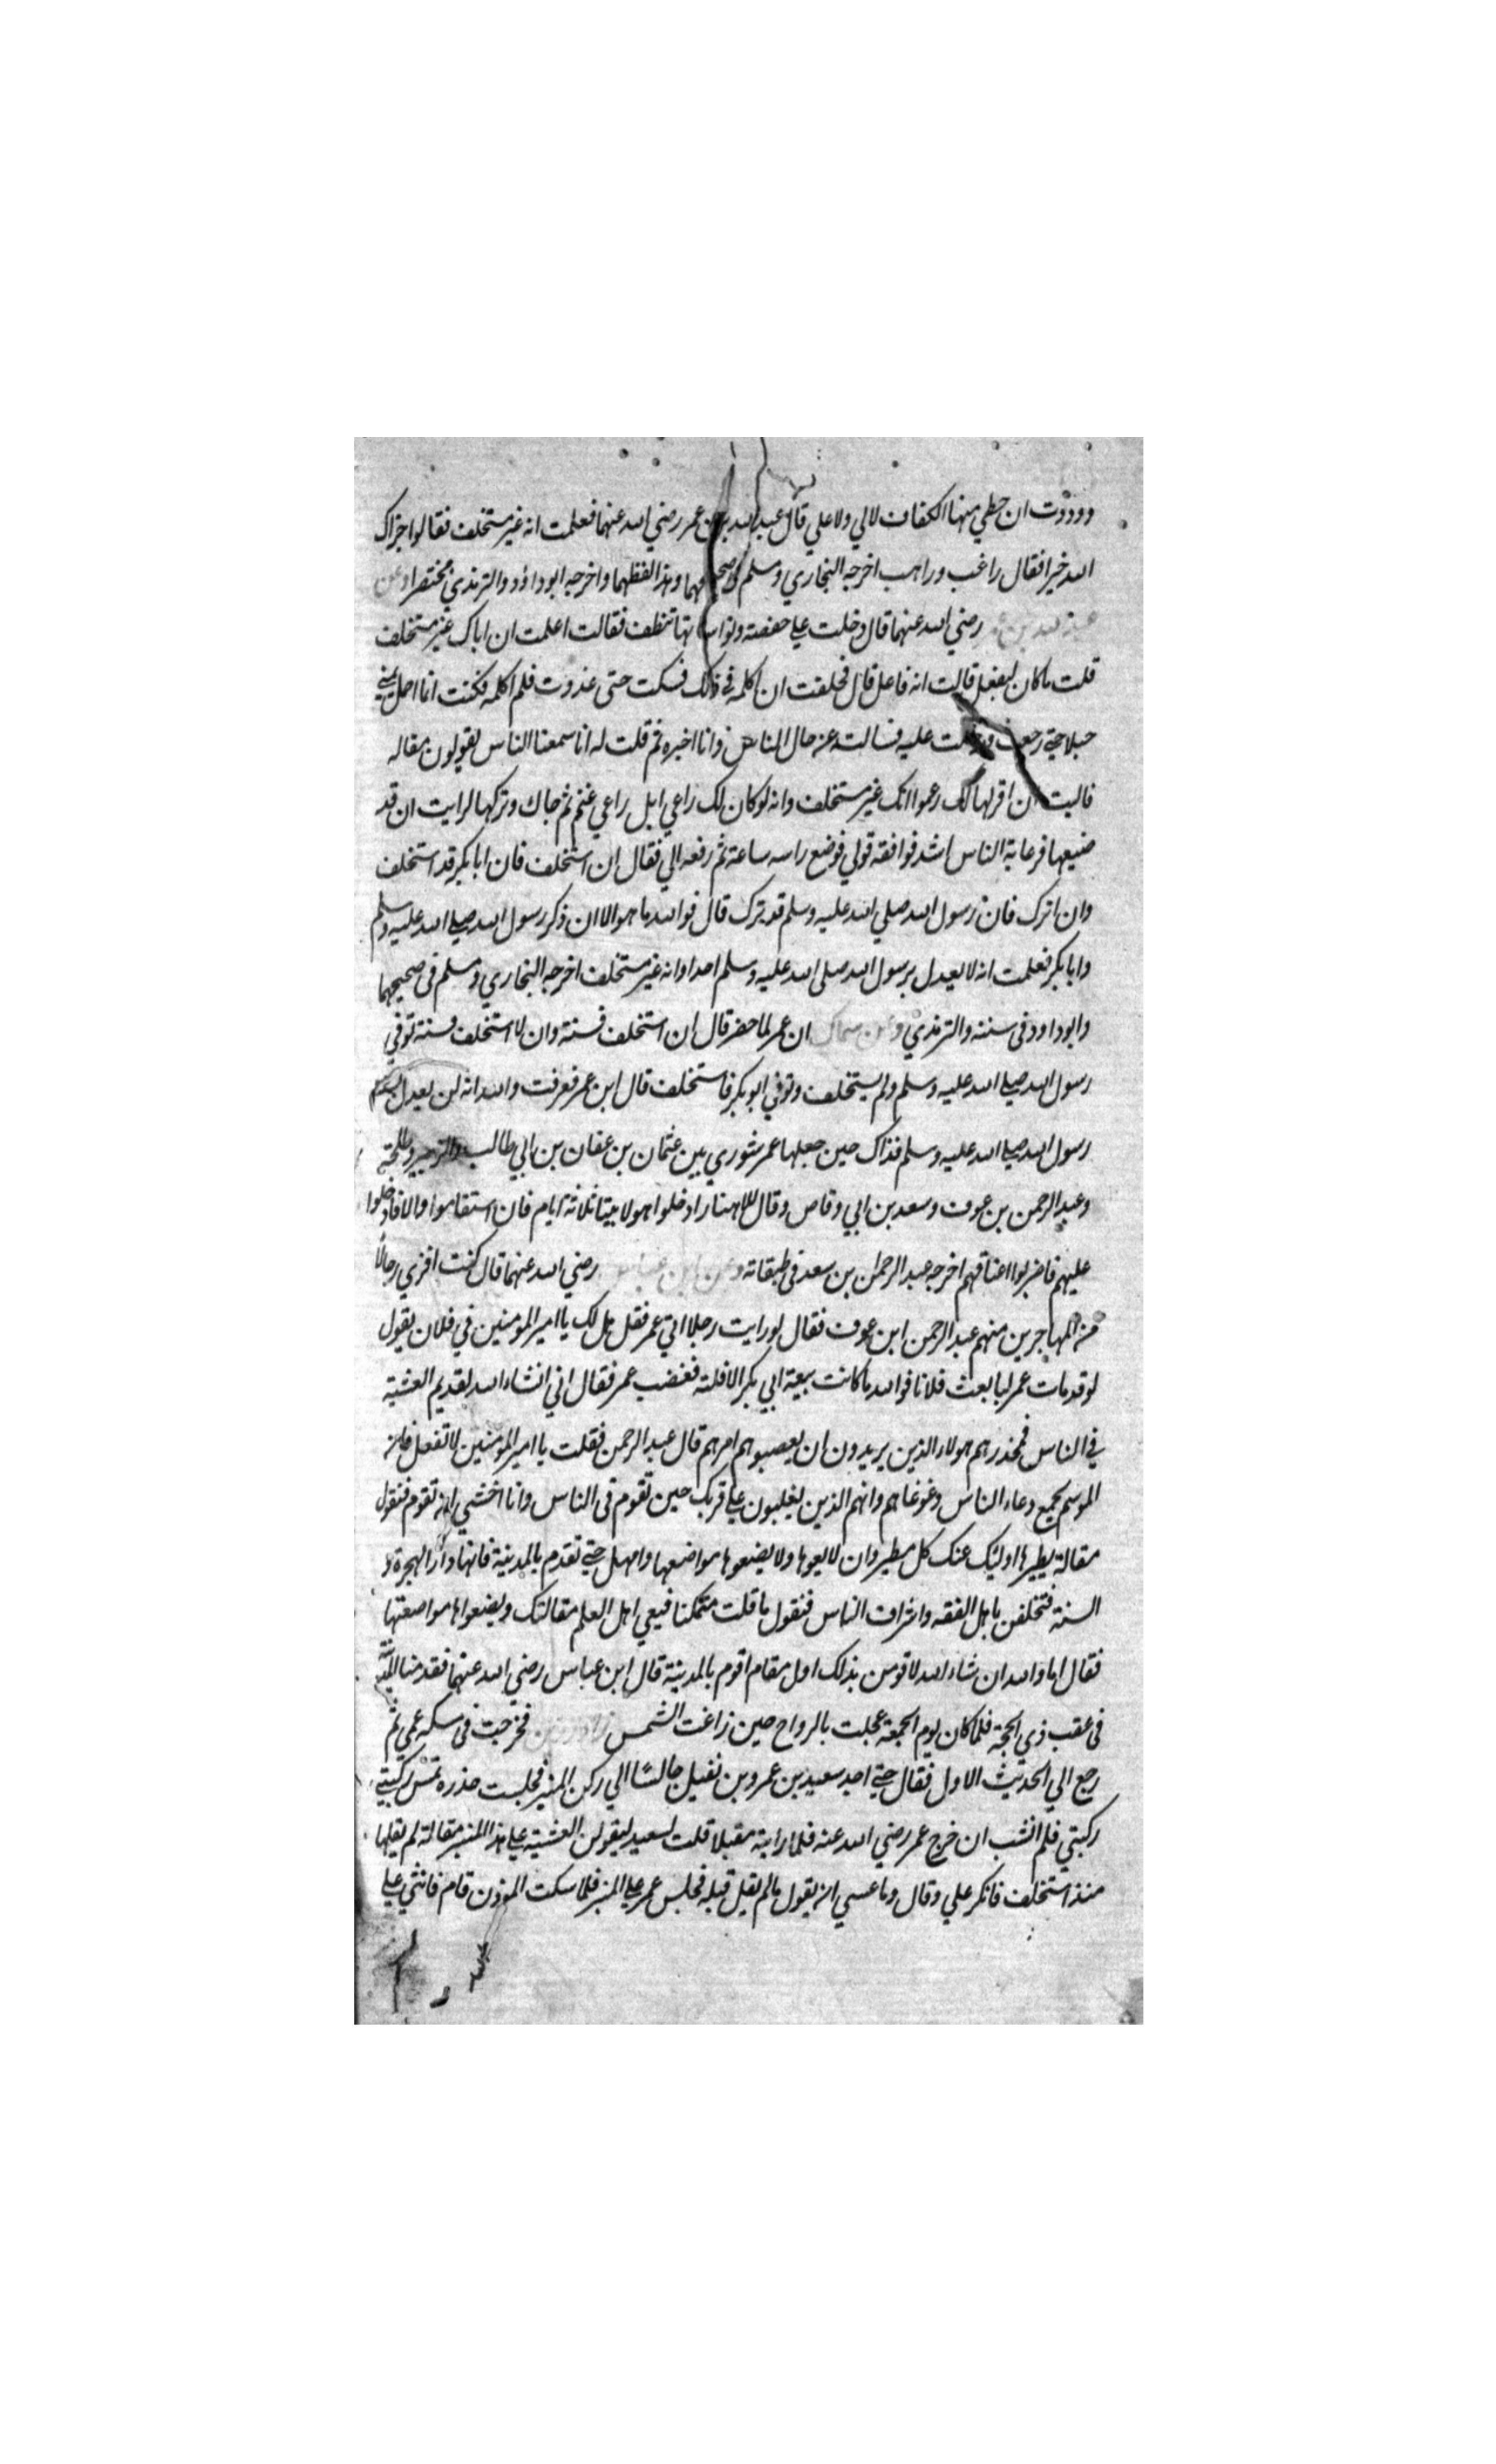 ووددت ان حظي منها الكفاف لالي ولا علي قال عبد الله بن عمر رضي الله عنهما فعلمت انه غير مستخلف فقالوا جزاك
الله خيرا فقال راغب وراهب اخرجه البخاري ومسلم في صحيحهما وهذا لفظهما واخرجه ابو داؤد والترمذي مختصرا وعن
عبد الله بن عمر رضي الله عنهما قال دخلت علي حفصة ونواساتها تنظف فقالت اعلمت ان اباك غير مستخلف
قلت ما كان ليفعل قالت انه فاعل قال فحلفت ان اكلمه في ذلك فسكت حتى غدوت فلم اكلمه فكنت انا احمل بيميني
جبلا حتي رجعت فدخلت عليه فسالت عن حال الناس وانا اخبره ثم قلت له انا سمعنا الناس يقولون مقاله
فاليت ان اقولها لك زعموا انك غير مستخلف وانه لو كان لك راعي ابل راعي غنم ثم جاك وتركها لرايت ان قد
ضيعها فرعاية الناس اشد فوافقه قولي فوضع راسه ساعة ثم رفعه الي فقال ان استخلف فان ابا بكر قد استخلف
وان اترك فان رسول الله صلي الله عليه وسلم قد ترك قال فوالله ما هو الا ان ذكر رسول الله صلي الله عليه وسلم
وابا بكر فعلمت انه لا يعدل برسول الله صلى الله عليه وسلم احدا وانه غير مستخلف اخرجه البخاري ومسلم في صحيحهما
وابو داود في سننه والترمذي وعن سماك ان عمر لما حضر قال ان استخلف فسنة وان لا استخلف فسنة توفي
رسول الله صلي الله عليه وسلم ولم يستخلف وتوفي ابو بكر فاستخلف قال ابن عمر فعرفت والله انه لن يعدل بسنة
رسول الله صلي الله عليه وسلم فذاك حين جعلها عمر شوري بين عثمان بن عفان بن ابي طالب والزبير وطلحة
وعبد الرحمن بن عوف وسعد بن ابي وقاص وقال للانصار ادخلوا هولا بيتا ثلاثة ايام فان استقاموا والا فادخلوا
عليهم فاضربوا اعناقهم اخرجه عبد الرحمان بن سعد في طبقاته وعن ابن عباس رضي الله عنهما قال كنت اقري رجالا
من المهاجرين منهم عبد الرحمن ابن عوف فقال لو رايت رجلا اتي عمر فقل هل لك يا امير المومنين في فلان يقول
لو قد مات عمر لبايعت فلانا فوالله ما كانت بيعة ابي بكر الا فلته فغضب عمر فقال اني انشاء الله لقديم العشية
في الناس فمحذرهم هولاء الذين يريدون ان يعصبوهم امرهم قال عبد الرحمن فقلت يا امير المومنين لا تفعل فان
الموسم يجمع دعاء الناس وغوغاهم وانهم الذين يغلبون علي قربك حين تقوم في الناس وانا اخشي ان تقوم فنقول
مقالة يطيرها اوليك عنك كل مطير وان لا يعوها ولا يضعوها مواضعها وامهل حتي تقدم بالمدينة فانها دار الهجرة و
السنة فتخلفن باهل الفقه واشراف الناس فتقول ما قلت متمكنا فيعي اهل العلم مقالتك ويضعواها مواضعها
فقال اما والله ان شاء الله لاقومن بذلك اول مقام اقوم بالمدينة قال ابن عباس رضي الله عنهما فقدمنا المدينة
في عقب ذي الحجة فلما كان يوم الجمعة عجلت بالرواح حين زاغت الشمس زاد رزين فخرجت في سكه عمي ثم
رجع الي الحديث الاول فقال حتي اجد سعيد بن عمرو بن نفيل جالسا الي ركن المنبر فجلست حذره تمس ركبتي
ركبتي فلم انشب ان خرج عمر رضي الله عنه فلما رايته مقبلا قلت لسعيد ليقولن العشية علي هذا المنبر مقالة لم يقلها
منذ استخلف فانكر علي وقال وما عسي ان يقول ما لم يقل قبله فجلس عمر علي المنبر فلما سكت الموذن قام فاثني علي